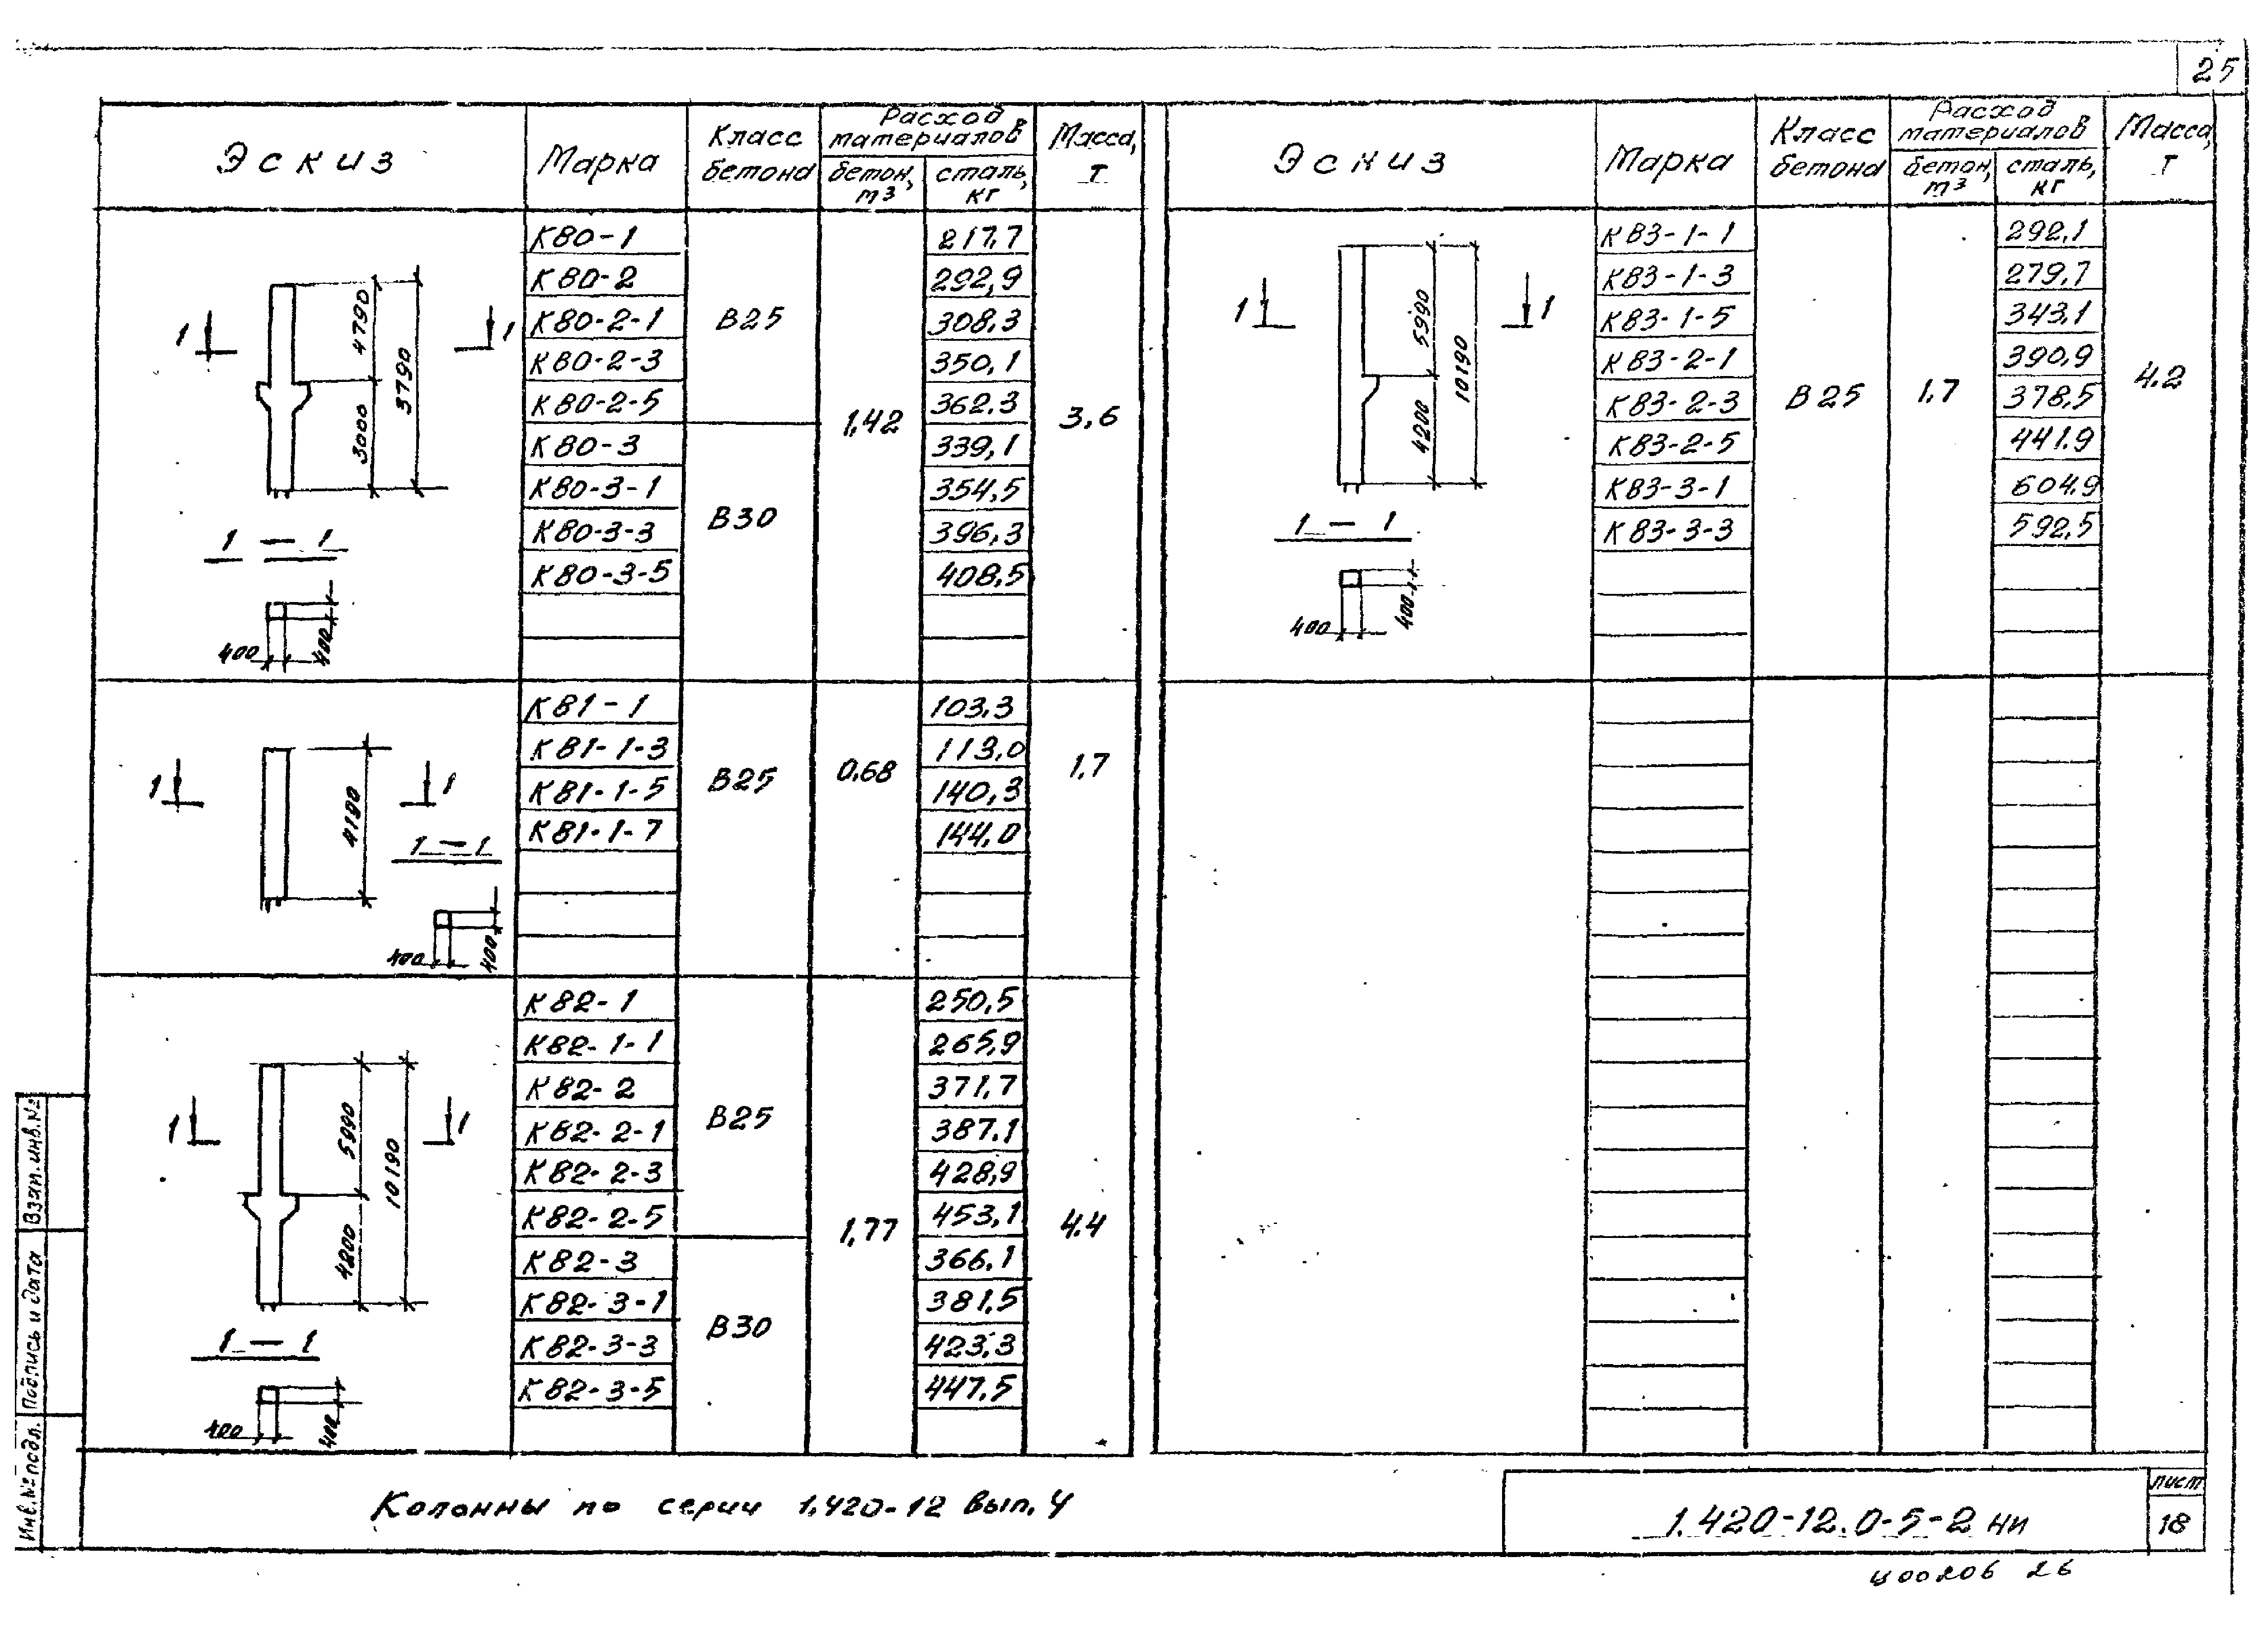 25
Эскиз Марка Класс бетона Расход материалов бетон, м³ сталь, кг Масса, т
К80-1 217,7
К80-2 292,9
К80-2-1 В25 308,3
К80-2-3 350,1
К80-2-5 362,3
1,42 3,6
К80-3 339,1
К80-3-1 354,5
К80-3-3 В30 396,3
К80-3-5 408,5
1 1
4790
3790
3000
1 — 1
400 400
К81-1 103,3
К81-1-3 113,0
К81-1-5 В25 0,68 140,3 1,7
К81-1-7 144,0
1 1
4190
1 — 1
400 400
К82-1 250,5
К82-1-1 265,9
К82-2 371,7
К82-2-1 В25 387,1
К82-2-3 428,9
К82-2-5 453,1
1,77 4.4
К82-3 366,1
К82-3-1 381,5
К82-3-3 В30 423,3
К82-3-5 447,5
1 1
5990
10190
4200
1 — 1
400 400
Эскиз Марка Класс бетона Расход материалов бетон, м³ сталь, кг Масса, т
К83-1-1 292,1
К83-1-3 279,7
К83-1-5 343,1
К83-2-1 390,9
К83-2-3 В25 1,7 378,5 4.2
К83-2-5 441.9
К83-3-1 604,9
К83-3-3 592,5
1 1
5990
10190
4200
1 — 1
400 400
Инв.№ подл. Подпись и дата Взам.инв.№
Колонны по серии 1.420-12 вып. 4
1.420-12.0-5-2 НИ
лист
18
Ц00206 26